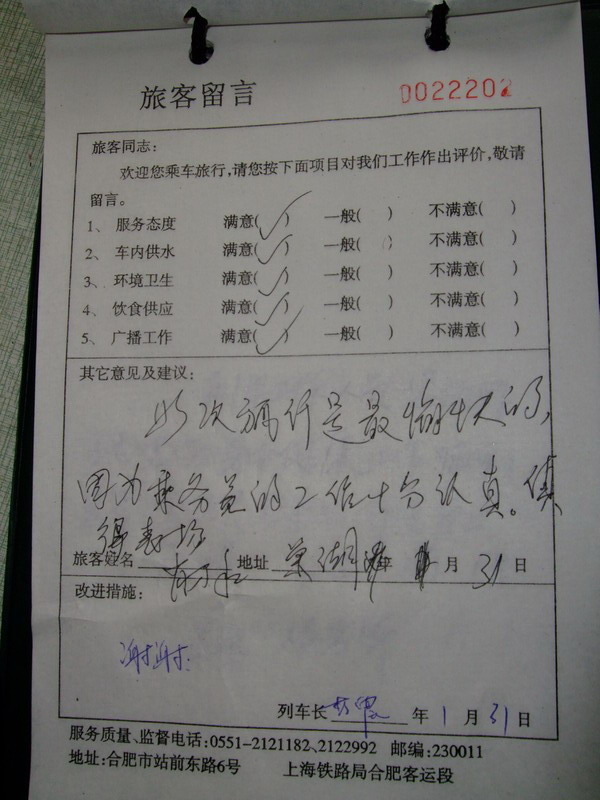 旅客留言
0022202
旅客同志:
欢迎您乘车旅行,请您按下面项目对我们工作作出评价,敬请
留言。
1、服务态度 满意(✓) 一般( ) 不满意( )
2、车内供水 满意(✓) 一般( ) 不满意( )
3、环境卫生 满意(✓) 一般( ) 不满意( )
4、饮食供应 满意(✓) 一般( ) 不满意( )
5、广播工作 满意(✓) 一般( ) 不满意( )
其它意见及建议:
此次旅行是最愉快的,
因为乘务员的工作十分认真。值
得表扬
旅客姓名 地址 巢湖 年 月 31 日
改进措施:
谢谢
列车长 年 1 月 31 日
服务质量、监督电话:0551-2121182、2122992 邮编:230011
地址:合肥市站前东路6号 上海铁路局合肥客运段